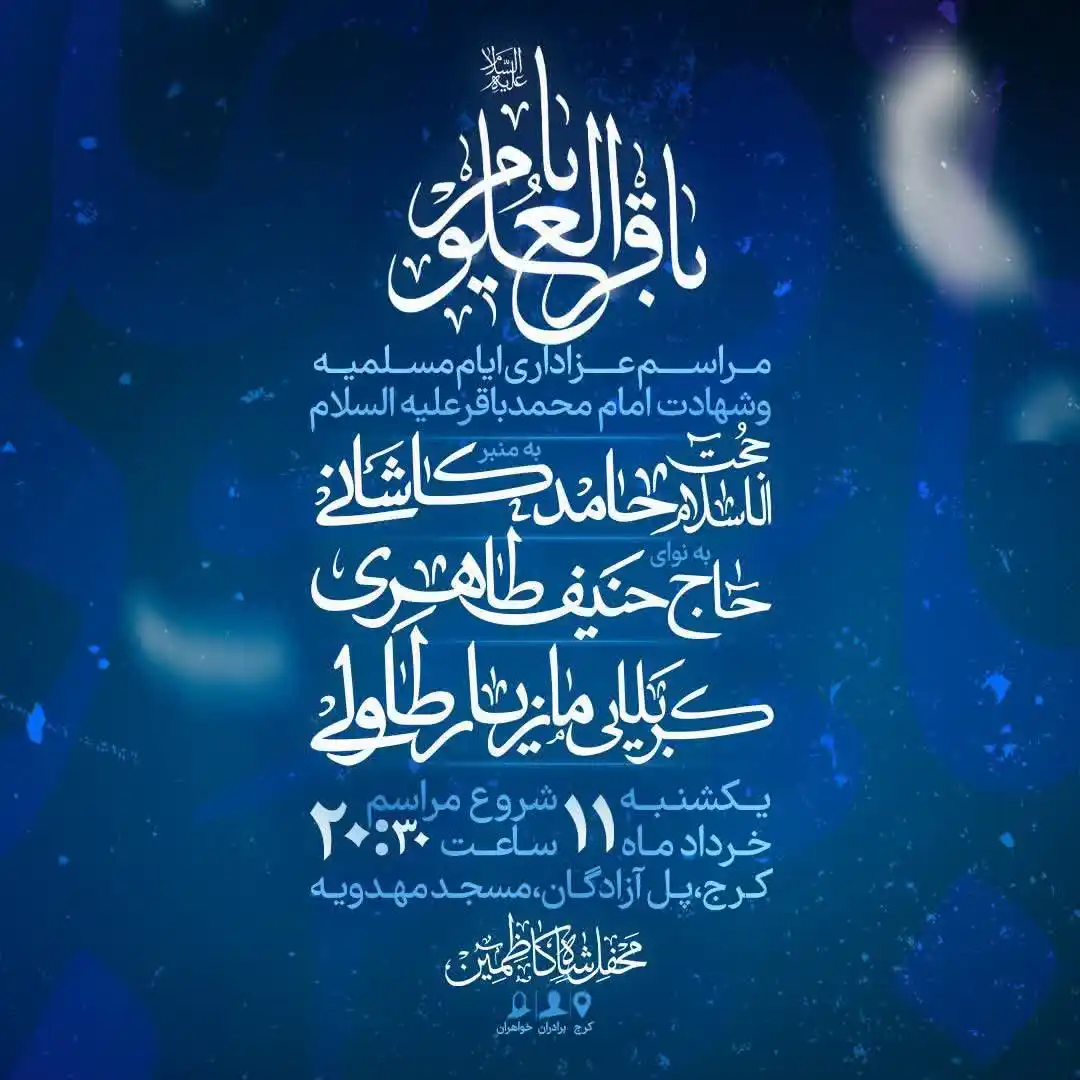 علیه السلام
یا باقر العلوم
مراسم عزاداری ایام مسلمیه
و شهادت امام محمد باقر علیه السلام
حجت الاسلام حامد کاشانی به منبر
به نوای
حاج حنیف طاهری
کربلایی مازیار طاولی
یکشنبه ۱۱ خرداد ماه
شروع مراسم ساعت ۲۰:۳۰
کرج، پل آزادگان، مسجد مهدویه
محفل شاه کاظمین
کرج برادران خواهران